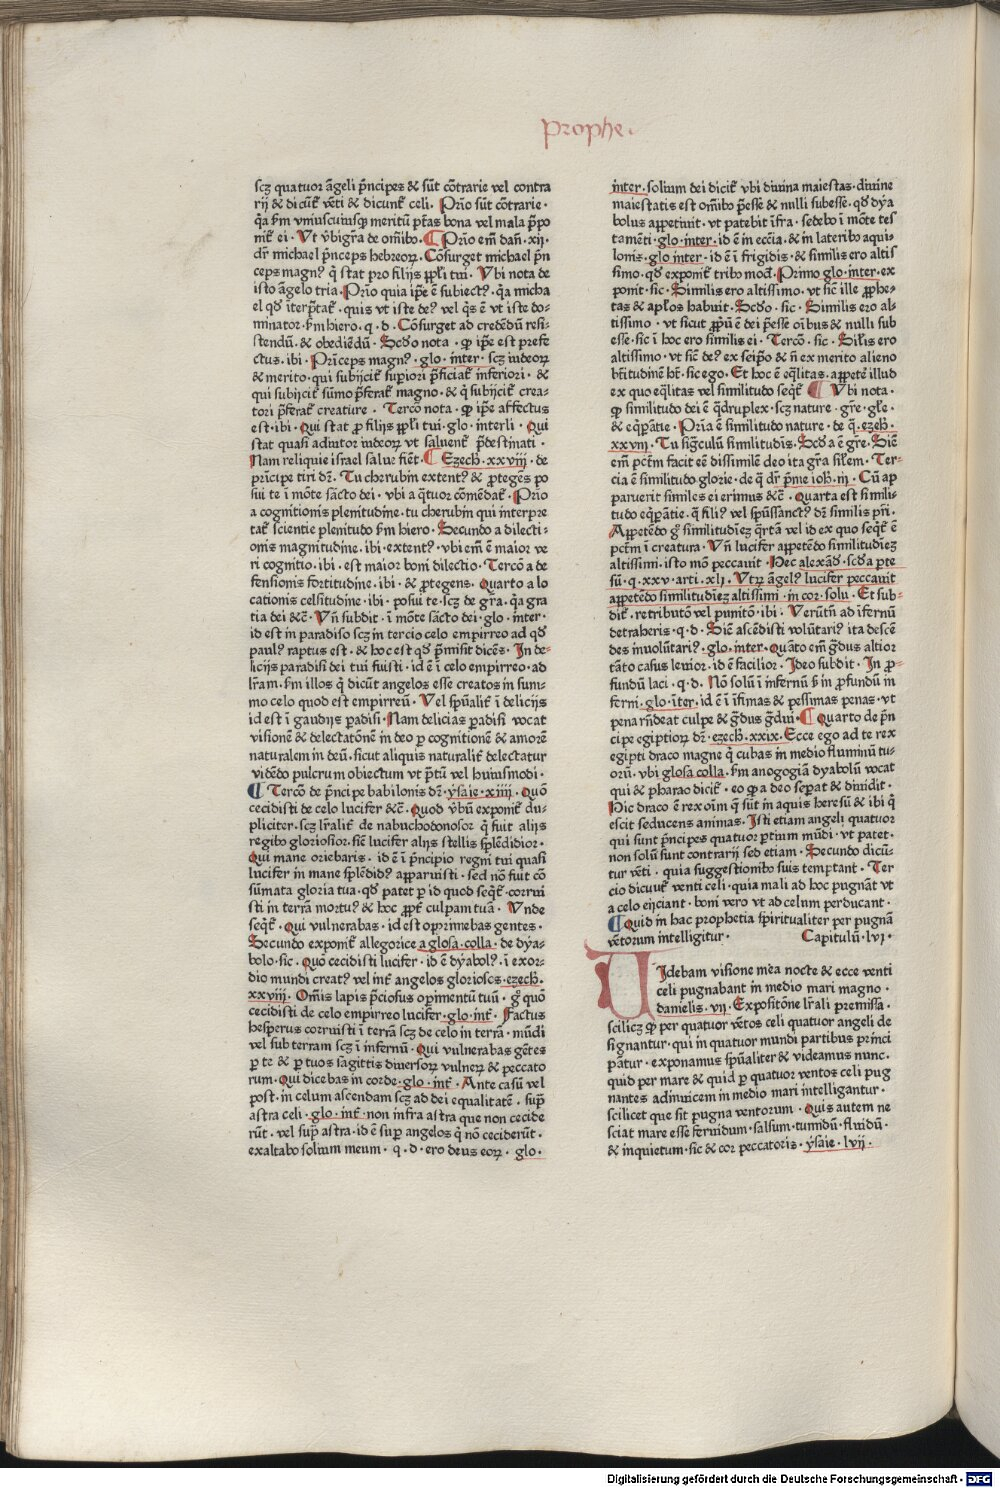 prophe·
scꝫ quatuor ãgeli p̃ncipes & sũt cõtrarie vel contra
rij & dicũt̃ vẽti & dicunt̃ celi· Prĩo sũt cõtrarie·
q̃a ẜm vniuscuiusqꝫ meritũ ptãs bona vel mala p̃po
nit̃ ei· Vt v̾bigr̃a de om̃ibo· ¶ Prĩo em̃ dañ·xij·
dr̃ michael p̃nceps hebreoꝝ· Cõsurget michael p̃n
ceps magnꝰ q̃ stat pro filijs pp̃li tui· Vbi nota de
isto ãgelo tria· Prĩo quia ip̃e ẽ subiectꝰ· q̃a micha
el qd̾ iterp̃tat̃· quis vt iste deꝰ vel q̾s ẽ vt iste do-
minator· ẜm hiero· q·d· Cõsurget ad credẽdũ resi-
stendũ· & obediẽdũ· Scd̾o nota· ꝙ ip̃e est prefe
ctus· ibi· Prĩceps magnꝰ· glo· inter· scꝫ iudeoꝝ
& merito· qui subijcit̃ supiori p̃ficiat̃ inferiori· &
qui subijcit̃ sũmo p̃ferat̃ magno· & q̾ subijcit̃ crea-
tori p̃ferat̃ creature· Tercõ nota· ꝙ ip̃e affectus
est· ibi· Qui stat ꝓ filijs pp̃li tui· glo· interli· Qui
stat quasi adiutor iudeoꝝ vt saluent̃ p̃destinati·
Nam reliquie israel salue fiẽt· ¶ Ezech̾·xxviij· de
prĩcipe tiri dꝛ̃· Tu cherubĩn extentꝰ & ꝓtegẽs po
sui te ĩ mõte sãcto dei· vbi a q̃tuor cõmẽdat̃· Prĩo
a cognitionis plenitudĩne· tu cherubĩn qui interpre
tat̃ scientie plenitudo ẜm hiero· Secundo a dilecti-
onis magnitudĩne· ibi· extentꝰ· vbi em̃ ẽ maior ve
ri cognitio· ibi· est maior boni dilectio· Tercõ a de
fensionis fortitudĩne· ibi· & ꝓtegens· Quarto a lo
cationis celsitudĩne· ibi· posui te· scꝫ de gr̃a· q̃a gra
tia dei &c̃· Vñ subdit· ĩ mõte sãcto dei· glo· inter·
id est in paradiso scꝫ in tercio celo empirreo ad qd̾
paulꝰ raptus est· & hoc est qd̾ p̃misit dicẽs· In de-
licijs paradisi dei tui fuisti· id ẽ ĩ celo empirreo· ad
lr̃am· ẜm illos q̾ dicũt angelos esse creatos in sum-
mo celo quod est empirreũ· Vel sp̃ualit̃ ĩ delicijs
id est ĩ gaudijs ꝑadisi· Nam delicias ꝑadisi vocat
visionẽ & delectatõnẽ in deo ꝑ cognitionẽ & amorẽ
naturalem in deũ· sicut aliquis naturalit̃ delectatur
vidẽdo pulcrum obiectum vt p̃tũ vel huiusmodi·
¶ Tercõ de p̃ncipe babilonis dꝛ̃· ysaie·xiiij· Quõ
cecidisti de celo lucifer &c̃· Quod v̾bũ exponit̃ du-
pliciter· scꝫ lr̃alit̃ de nabuchodonosor q̾ fuit alijs
regibo gloriosior· siẽ lucifer alijs stellis splẽdidior·
Qui mane oriebaris· id ẽ ĩ p̃ncipio regni tui quasi
lucifer in mane splẽdidꝰ apparuisti· sed nõ fuit cõ
sũmata gloria tua· qd̾ patet ꝑ id quod seqt̃· corrui
sti in terrã mortuꝰ & hoc ꝓpt̃ culpam tuã· Vnde
seqt̃· Qui vulnerabas· id est oprimebas gentes·
Secundo exponit̃ allegorice a glosa·colla· de dya-
bolo· sic· Quõ cecidisti lucifer· id ẽ dyabolꝰ· ĩ exor-
dio mundi creatꝰ vel int̃ angelos gloriosos· ezech̾·
xxviij· Om̃is lapis p̃ciosus opimentũ tuũ· g̊ quõ
cecidisti de celo empirreo lucifer· glo·int̃· Factus
hesperus corruisti ĩ terrã scꝫ de celo in terrã· mũdi
vel sub terram scꝫ ĩ infernũ· Qui vulnerabas gẽtes
ꝑ te & ꝑ tuos sagittis diuersoꝝ vulneꝝ & peccato
rum· Qui dicebas in corde· glo·int̃· Ante casũ vel
post· in celum ascendam scꝫ ad dei equalitatẽ· sup̃
astra celi· glo·int̃· non infra astra que non cecide
rũt· vel sup̃ astra· id ẽ sup̃ angelos q̾ nõ ceciderũt·
exaltabo solium meum· q·d· ero deus eoꝝ· glo·
inter· solium dei dicit̃ vbi diuina maiestas· diuine
maiestatis est om̃ibo p̃esse & nulli subesse· qd̾ dya
bolus appetiuit· vt patebit ĩfra· sedebo ĩ mõte tes
tamẽti· glo·inter· id ẽ in ecc̃ia· & in lateribo aqui-
lonis· glo inter· id ẽ ĩ frigidis· & similis ero altis
simo· qd̾ exponit̃ tribo mod̾· Primo glo·inter· ex
ponit· sic· Similis ero altissimo· vt siẽ ille ꝓphe-
tas & aplo̾s habuit· Scd̾o· sic· Similis ero al-
tissimo· vt sicut ꝓpriũ ẽ dei p̃esse oĩbus & nulli sub
esse· sic ĩ hoc ero similis ei· Tercõ· sic· Silis̃ ero
altissimo· vt siẽ deꝰ ex seip̃o & ñ ex merito alieno
bt̃itudinẽ ht̃· sic ego· Et hoc ẽ eq̃litas· appetẽ illud
ex quo eq̃litas vel similitudo seqt̃· ¶ Vbi nota·
ꝙ similitudo dei ẽ q̃druplex· scꝫ nature· gr̃e· gl̃e·
& eq̾patie· Prĩa ẽ similitudo nature· de q̾· ezech̾·
xxviij· Tu sig̃culũ similitudĩs· Scd̾a ẽ gr̃e· Siẽ
em̃ pct̃m facit eẽ dissimilẽ deo ita gr̃a silem̃· Ter-
cia ẽ similitudo glorie· de q̾ dꝛ̃ p̃me ioh̾·iij· Cũ ap
paruerit similes ei erimus &c̃· Quarta est simili-
tudo eq̾patie· q̾ filiꝰ vel sp̃ussanctꝰ dꝛ̃ similis pr̃i·
Appetẽdo g̊ similitudiez q̃rtã vel id ex quo seqt̃ ẽ
pct̃m ĩ creatura· Vñ lucifer appetẽdo similitudiez
altissimi· isto mõ peccauit· Hec alexãd̾· scd̾a ꝑte
sũ·q·xxv·arti·xlj· Vtꝝ ãgelꝰ lucifer peccauit
appetẽdo similitudiez altissimi· in cor·solu· Et sub-
dit̃· retributõ vel punitõ· ibi· Verũtñ ad ĩfernũ
detraheris· q·d· Siẽ ascẽdisti volũtariꝰ ita descẽ
des inuolũtariꝰ· glo·inter· Quãto em̃ g̃dus altior
tãto casus leuior· id ẽ facilior· Ideo subdit· In ꝓ-
fundũ laci· q·d· Nõ solũ ĩ infernũ ẜ in ꝓfundũ in
ferni· glo·ĩter· id ẽ ĩ ĩfimas & pessimas penas· vt
pena r̃ndeat culpe & g̃dus g̃dui· ¶ Quarto de p̃n
cipe egiptioꝝ dꝛ̃· ezech̾·xxix· Ecce ego ad te rex
egipti draco magne q̾ cubas in medio fluminũ tu-
orũ· vbi glosa colla· ẜm anogogiã dyabolũ vocat
qui & pharao dicit̃· eo ꝙ a deo sepat & diuidit·
Hic draco ẽ rex oĩm q̾ sũt in aquis heresũ & ibi q̾
escit seducens animas· Isti etiam angeli quatuor
qui sunt p̃ncipes quatuor ꝑtium mũdi· vt patet·
non solũ sunt contrarij sed etiam· Secundo dicũ-
tur vẽti· quia suggestionibo suis temptant· Ter
cio dicunt̃ venti celi· quia mali ad hoc pugnãt vt
a celo eijciant· boni vero vt ad celum perducant·
¶ Quid in hac prophetia spiritualiter per pugnã
vẽtorum intelligitur· Capitulũ·lvi·
VIdebam visione mea nocte & ecce venti
celi pugnabant in medio mari magno·
danielis·vij· Expositõne lr̃ali premissa·
scilicꝫ ꝙ per quatuor vẽtos celi quatuor angeli de
signantur· qui in quatuor mundi partibus princi
pãtur· exponamus sp̃ualiter & videamus nunc·
quid per mare & quid ꝑ quatuor ventos celi pug
nantes adinuicem in medio mari intelligantur·
scilicet que sit pugna ventorum· Quis autem ne
sciat mare esse feruidum· salsum· tumidũ· fluidũ·
& inquietum· sic & cor peccatoris· ysaie·lvij·
Digitalisierung gefördert durch die Deutsche Forschungsgemeinschaft - DFG